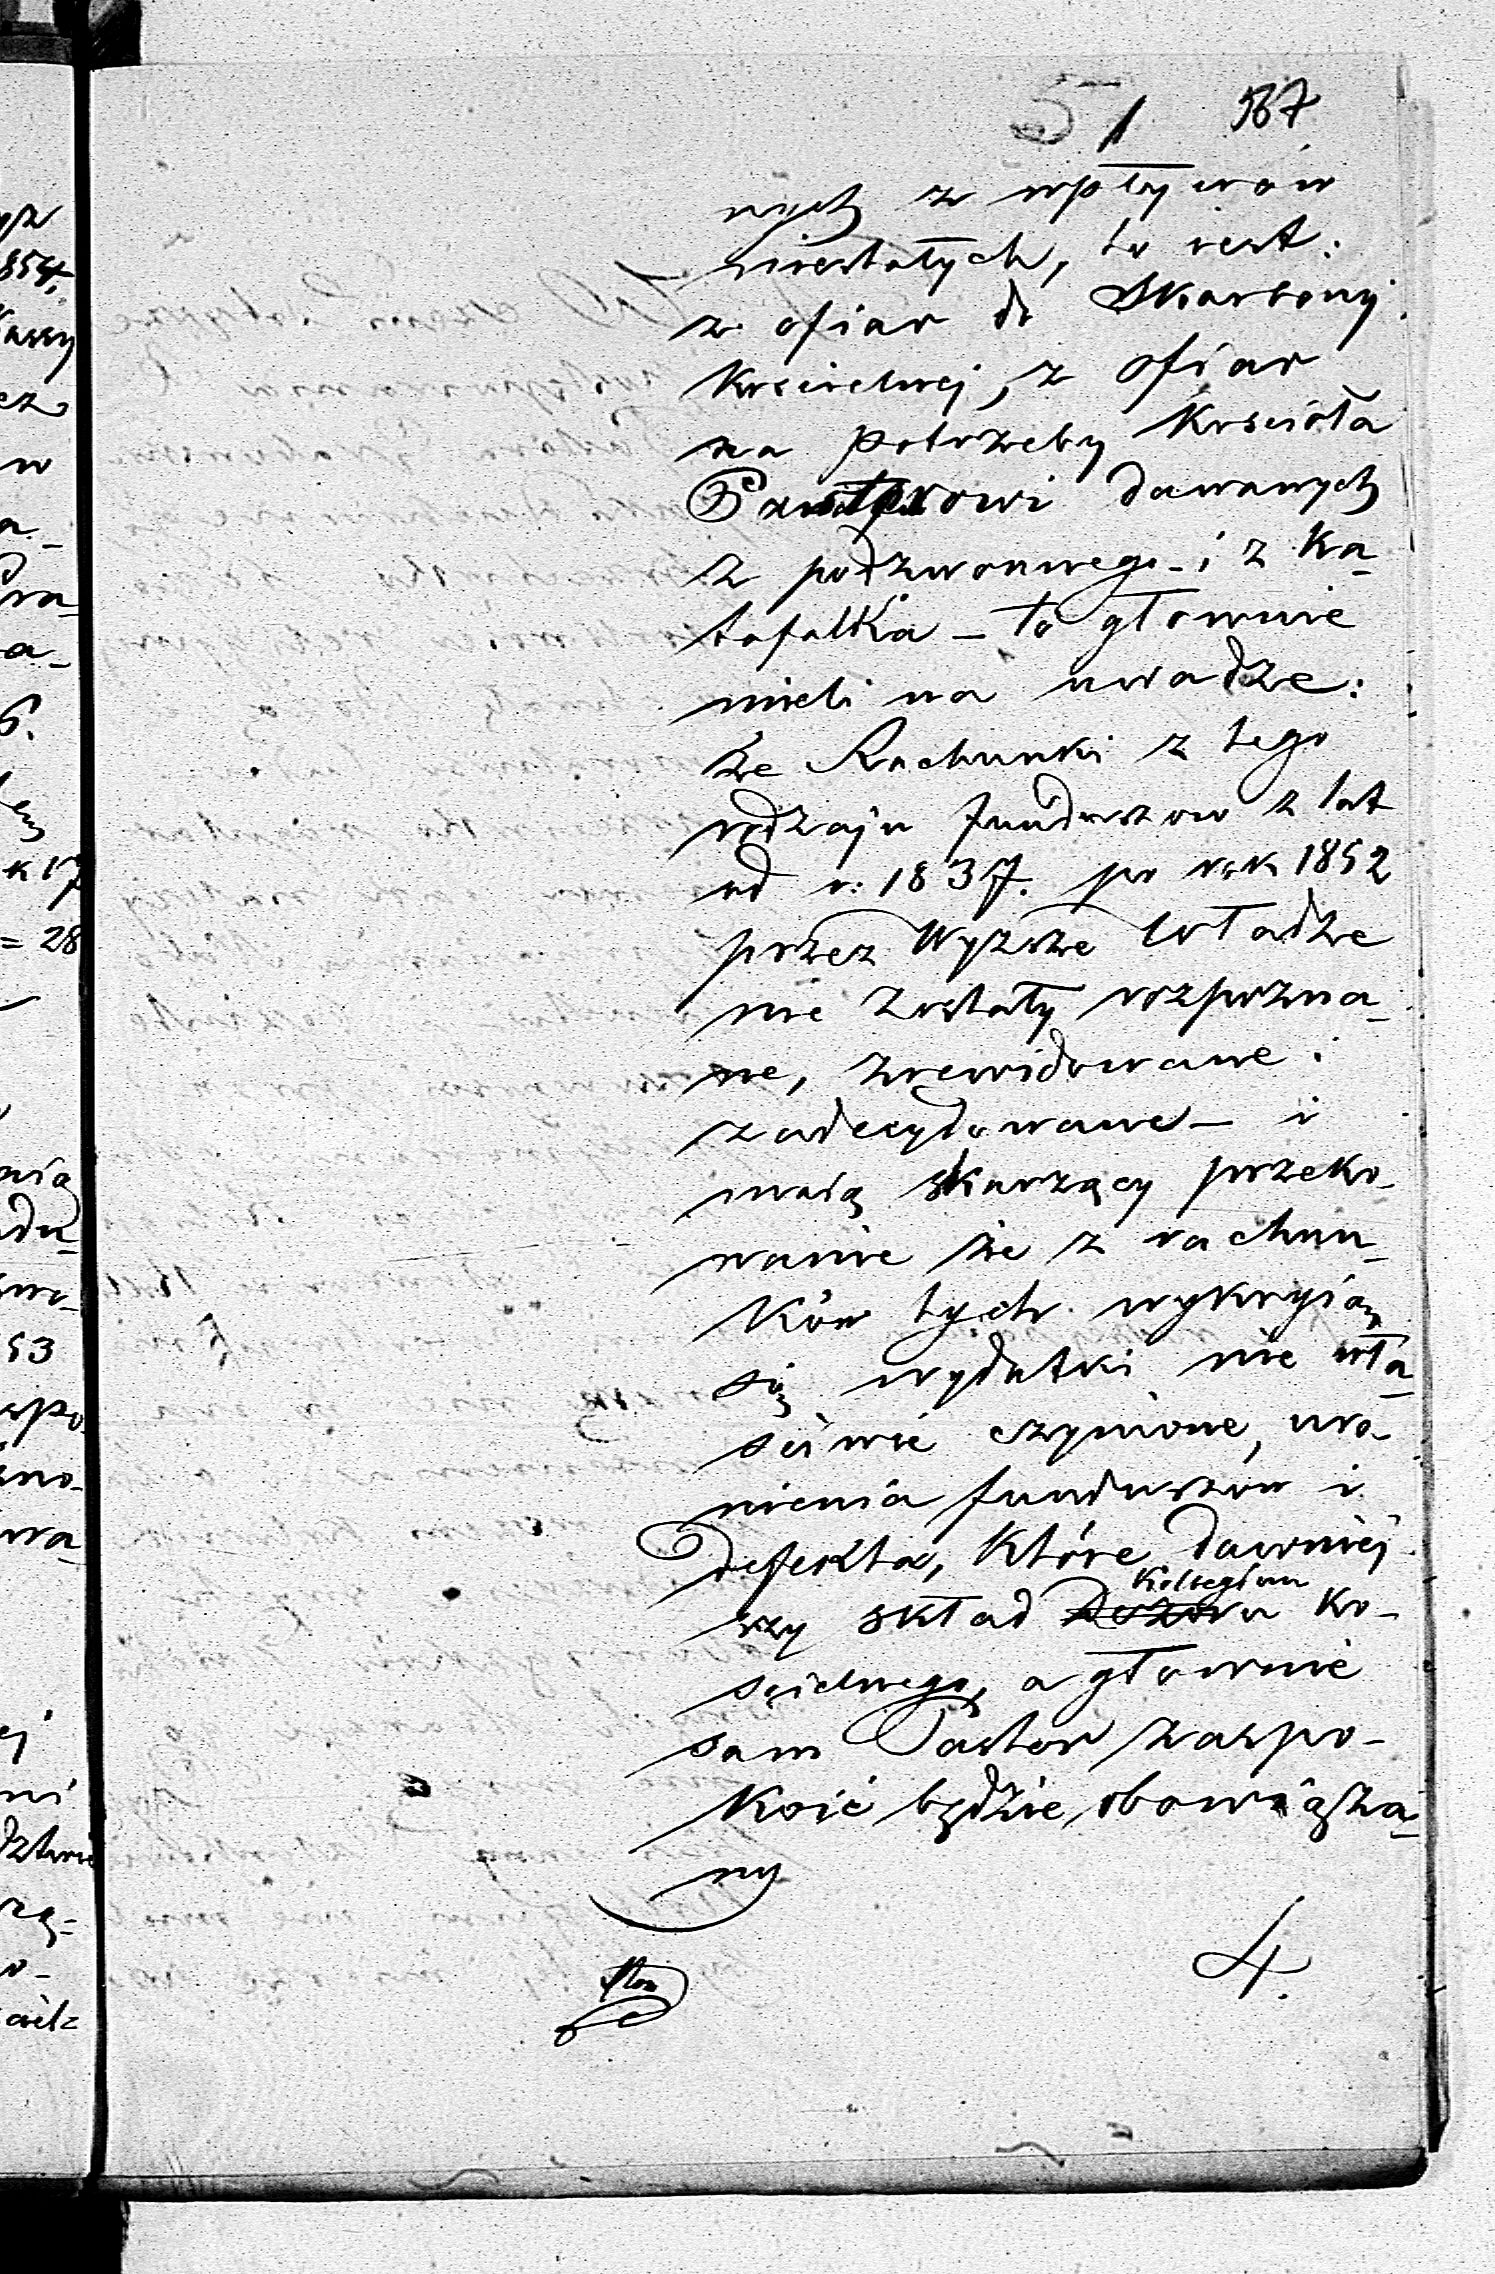 567
nych z wpływów
niestałych, to iest:
z ofiar do Skarbony
kościelnej, z ofiar
na potrzeby Kościoła
Pastorowi dawanych
z podzwonnego – i z Ka-
tafalka – to głownie
mieli na uwadze:
że Rachunki z tego
rodzaju funduszow z lat
od r: 1837. po rok 1852
przez Wyższe Władze
nie zostały rozpozna-
ne, zrewidowane i
zadecydowane – i
maią skarżący przeko-
nanie że z rachun-
ków tych wykryią
się wydatki nie wła-
sciwie czynione, uro-
nienia funduszow i
defekta, które dawniej
szy skład Kollegium
Dozoru Ko-
scielnego, a głownie
sam Pastor zaspo-
koić będzie obowiąza-
ny
4.